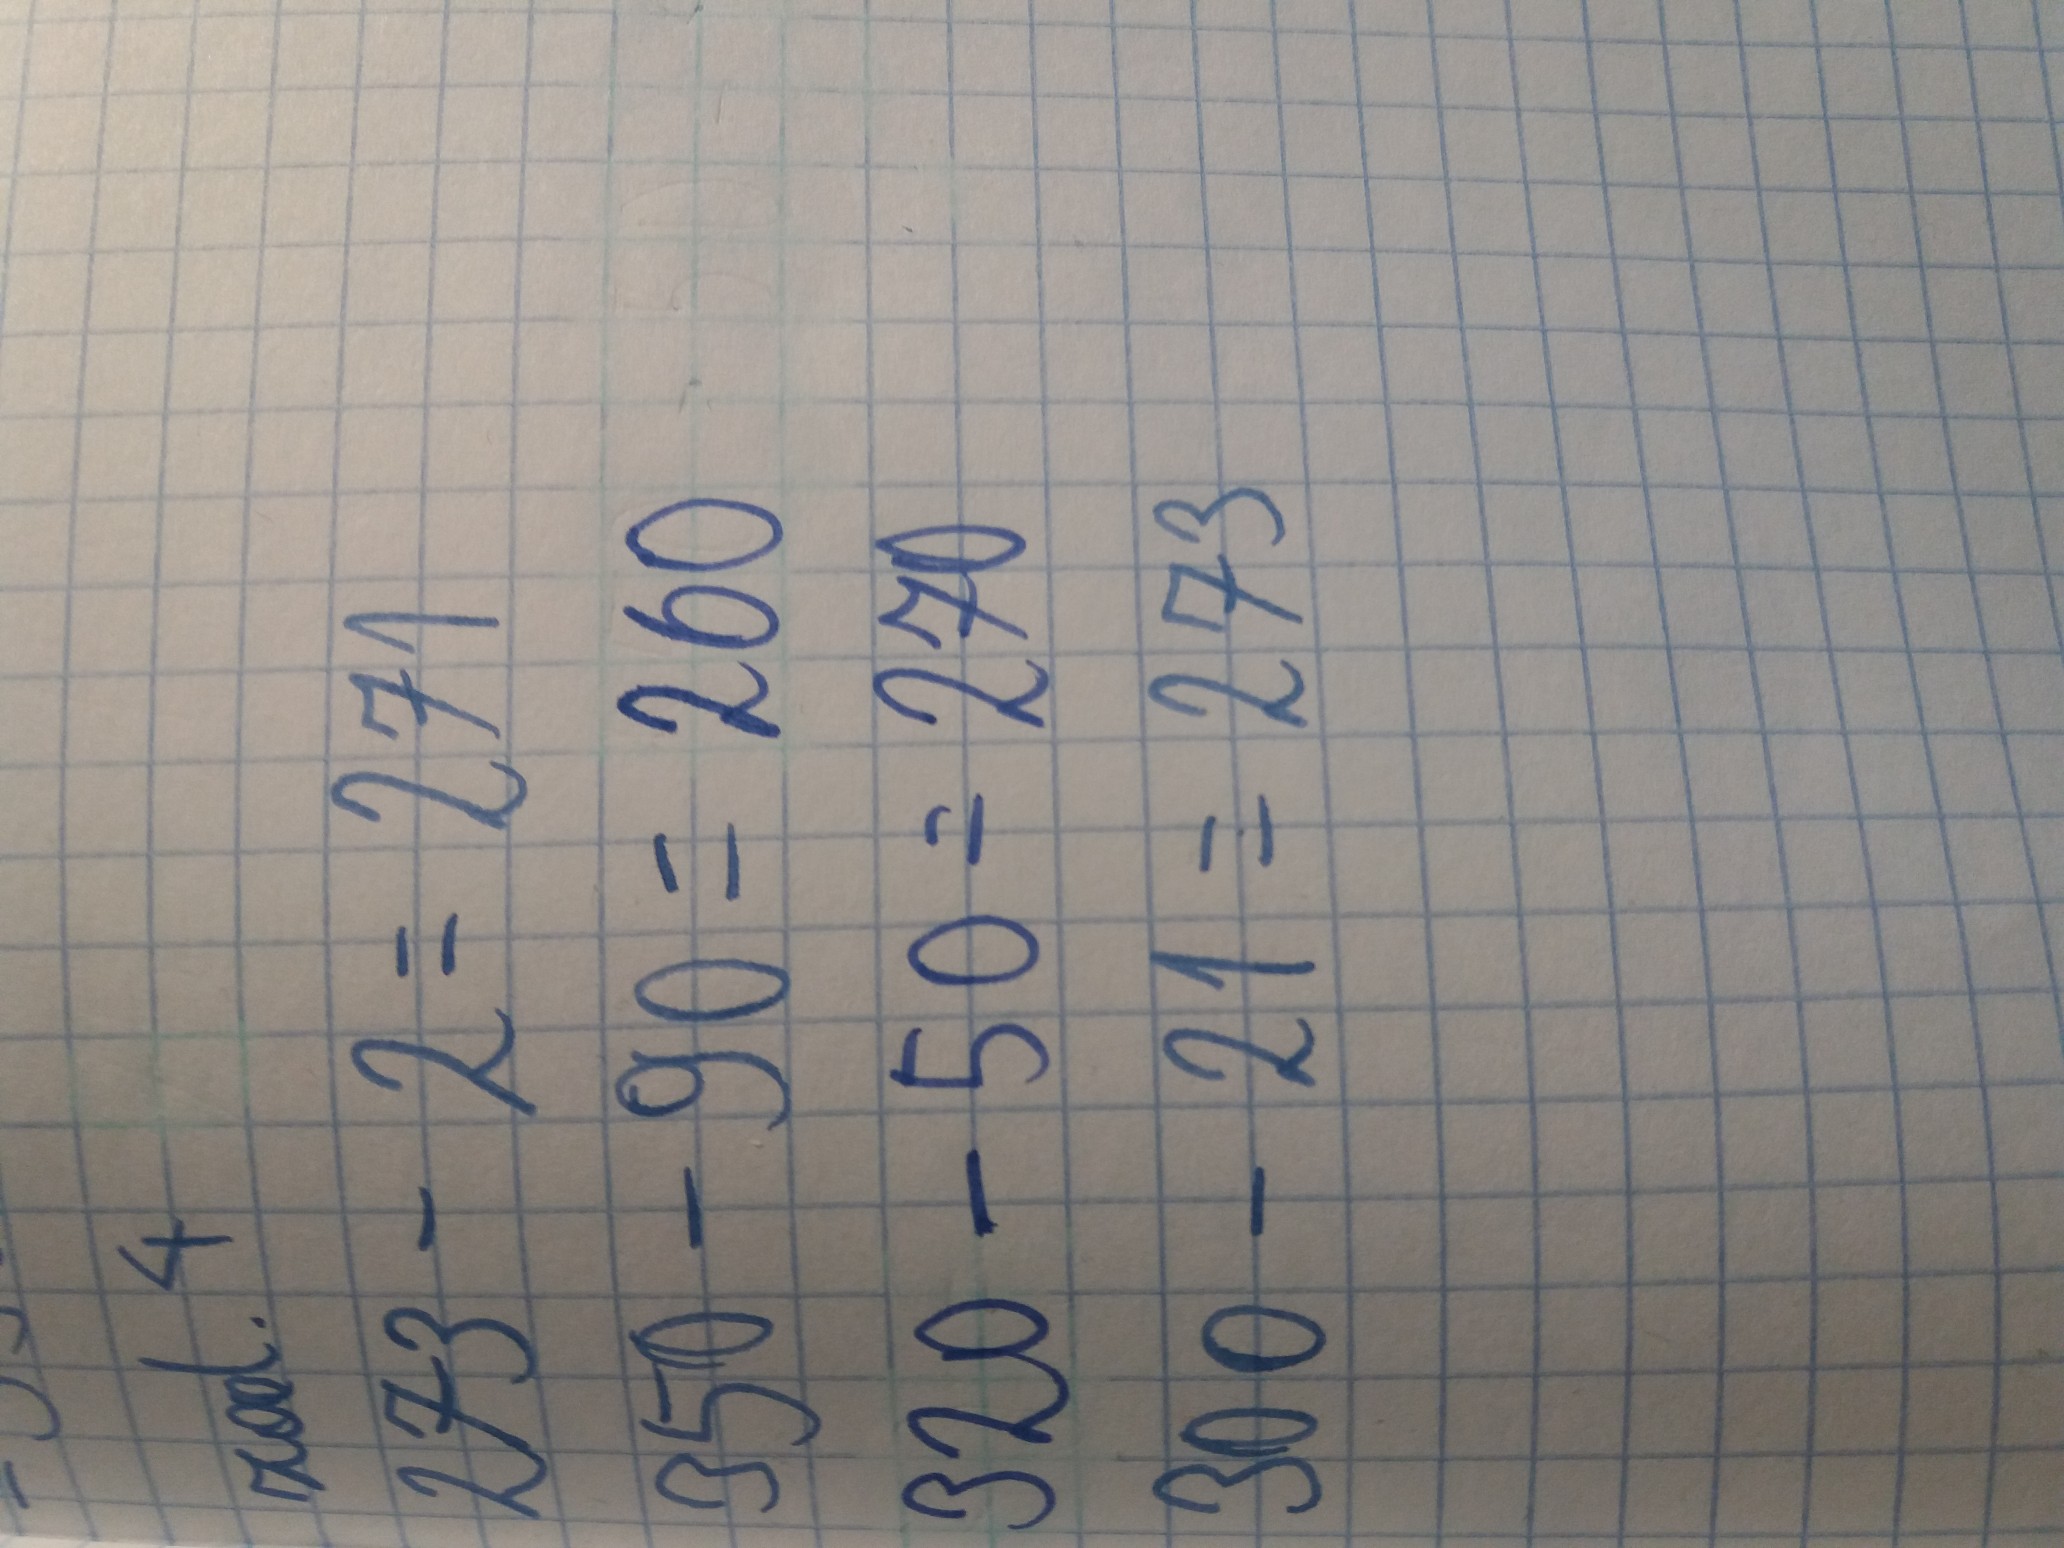 zad. 4
273 - 2 = 271
350 - 90 = 260
320 - 50 = 270
300 - 21 = 273